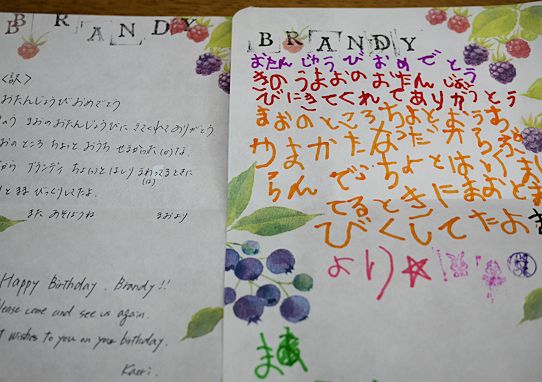 BRANDY
<訳>
おたんじょうびおめでとう
まおのおたんじょうびにきてくれてありがとう
おのところ ちょっと おうち せまかった(か)な
から ブランディ ちょ(っ)と はしり まわってるときに
とまま びっくりしてたよ。
また あそぼうね まおより
Happy Birthday, Brandy!!
Please come and see us again.
wishes to you on your birthday.
Kaori.
BRANDY
おたんじゅうびおめでとう
きのうまおのおたんじょ
びにきてくれてありがとう
まおのところちょとおうち
せまかたなだから
らんでちょとはしり
てるときにまおとま
びくしてたよ
より☆
ま